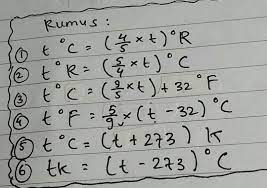 Rumus :
① t °C = (4/5 × t) °R
② t °R = (5/4 × t) °C
③ t °C = (9/5 × t) + 32 °F
④ t °F = 5/9 × (t - 32) °C
⑤ t °C = (t + 273) K
⑥ tk = (t - 273) °C